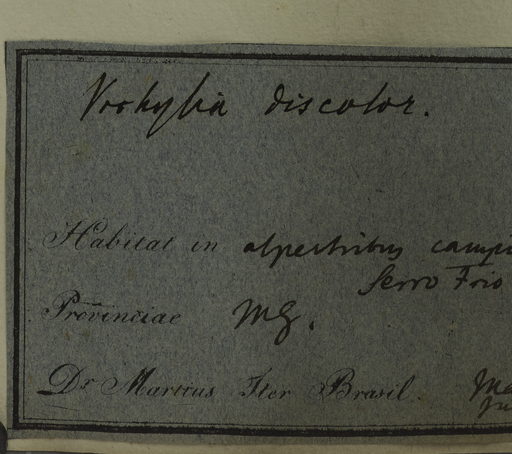 Vochysia discolor.
Habitat in alpestribus camp
Serro Frio
Provinciae MG.
Dr Martius Iter Brasil.